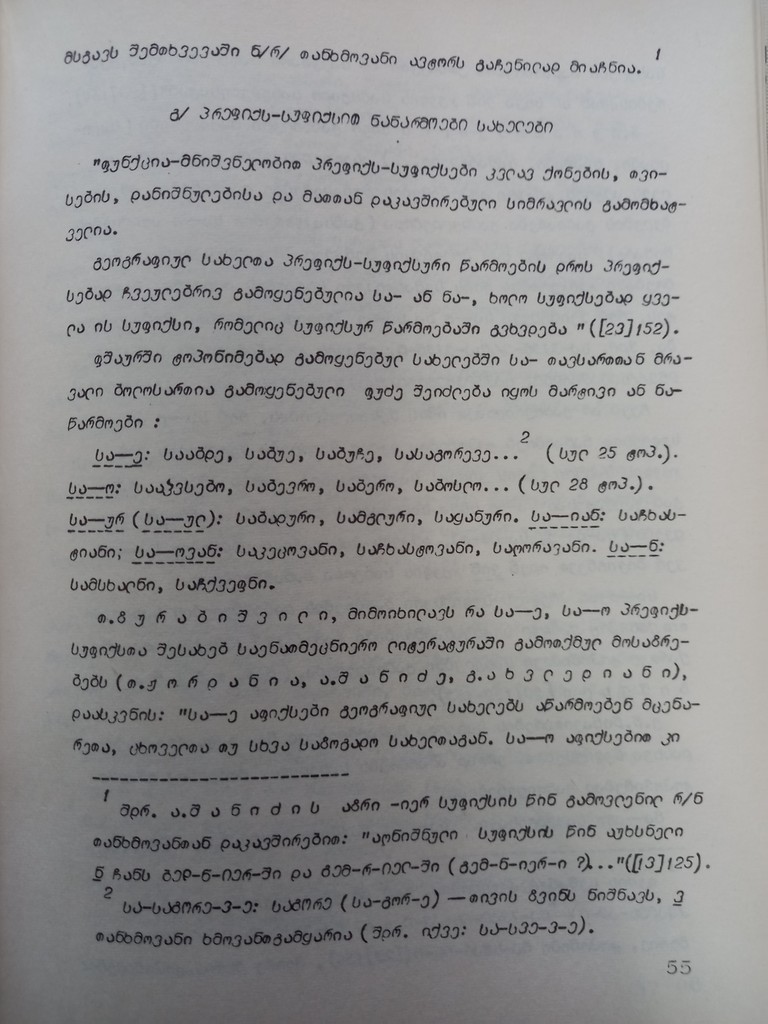 მსგავს შემთხვევაში ნ/რ/ თანხმოვანი ავტორს გაჩენილად მიაჩნია. 1
გ/ პრეფიქს-სუფიქსით ნაწარმოები სახელები
"ფუნქცია-მნიშვნელობით პრეფიქს-სუფიქსები კვლავ ქონების, თვი-
სების, დანიშნულებისა და მათთან დაკავშირებული სიმრავლის გამომხატ-
ველია.
გეოგრაფიულ სახელთა პრეფიქს-სუფიქსური წარმოების დროს პრეფიქ-
სებად ჩვეულებრივ გამოყენებულია სა- ან ნა-, ხოლო სუფიქსებად ყვე-
ლა ის სუფიქსი, რომელიც სუფიქსურ წარმოებაში გვხვდება "([23]152).
ფშაურში ტოპონიმებად გამოყენებულ სახელებში სა- თავსართთან მრა-
ვალი ბოლოსართია გამოყენებული ფუძე შეიძლება იყოს მარტივი ან ნა-
წარმოები :
სა—ე: სააბდე, საბუე, საბუჩე, სასაგორევე...2 (სულ 25 ტოპ.).
სა—ო: სააჴვსებო, საბევრო, საბერო, საბოსლო...(სულ 28 ტოპ.).
სა—ურ (სა—ულ): საბადური, სამგლური, საყანური. სა—იან: საჩხას-
ტიანი; სა—ოვან: საკეცოვანი, საჩხასტოვანი, საღორავანი. სა—ნ:
სამსხალნი, საჩქვეფნი.
თ.ზურაბიშვილი, მიმოიხილავს რა სა—ე, სა—ო პრეფიქს-
სუფიქსთა შესახებ საენათმეცნიერო ლიტერატურაში გამოთქმულ მოსაზრე-
ბებს (თ.ჟორდანია, ა.შანიძე, გ.ახვლედიანი),
დაასკვნის: "სა—ე აფიქსები გეოგრაფიულ სახელებს აწარმოებენ მცენა-
რეთა, ცხოველთა თუ სხვა საზოგადო სახელთაგან. სა—ო აფიქსებით კი
1 შდრ. ა.შანიძის აზრი -იერ სუფიქსის წინ გამოვლენილ რ/ნ
თანხმოვანთან დაკავშირებით: "აღნიშნული სუფიქსის წინ აუხსნელი
ნ ჩანს ბედ-ნ-იერ-ში და გემ-რ-იელ-ში (გემ-ნ-იერ-ი ?)..."([13]125).
2 სა-საგორე-ვ-ე: საგორე (სა-გორ-ე) —თივის ზვინს ნიშნავს, ვ
თანხმოვანი ხმოვანთგამყარია (შდრ. იქვე: სა-სვე-ვ-ე).
55